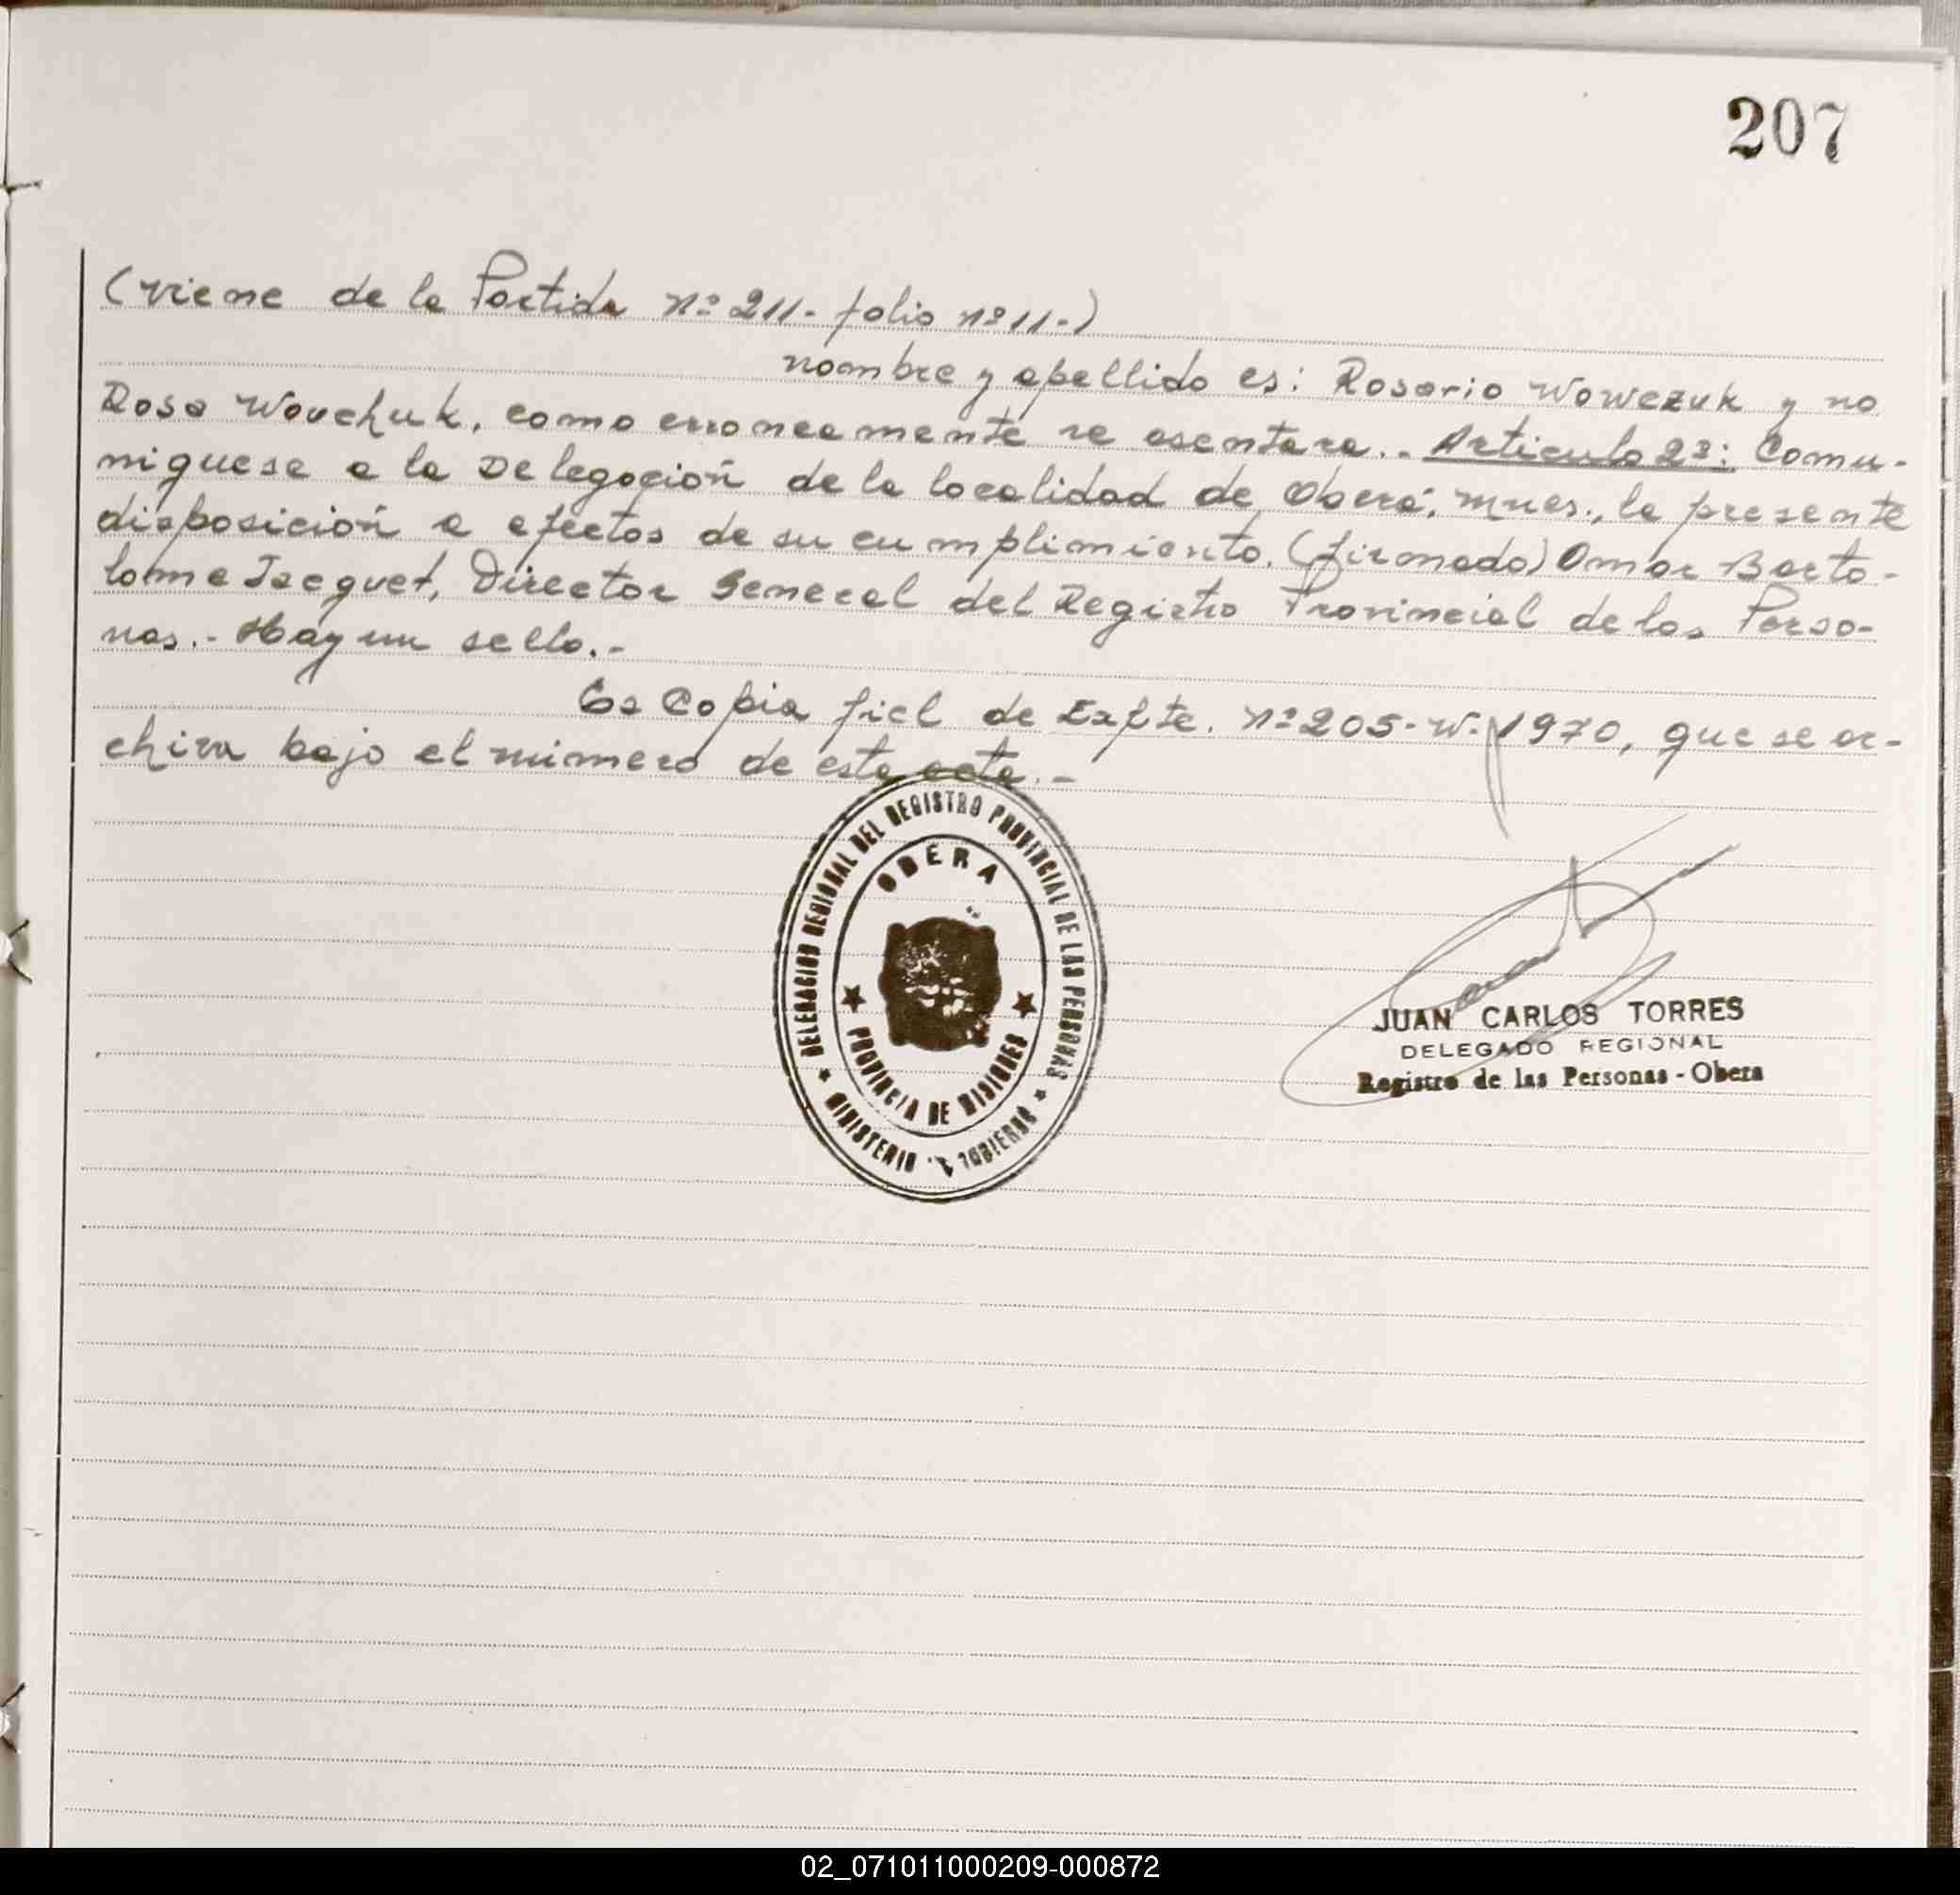 207
(viene de la Partida nº 211- folio nº 11-)
nombre y apellido es: Rosario Wowczuk y no
Rosa Wouchuk, como erroneamente se asentara.. Articulo 2º: Comu-
niquese a la Delegación de la localidad de Oberá, Mnes., la presente
disposición a efectos de su cumplimiento. (firmado) Omar Barto-
lome Jacquet, Director General del Registro Provincial de las Perso-
nas.- Hay un sello.-
Es Copia fiel de Expte. nº 205-W-1970, que se ar-
chiva bajo el número de esta acta.-
DELEGACION REGIONAL DEL REGISTRO PROVINCIAL DE LAS PERSONAS
OBERA
PROVINCIA DE MISIONES
MINISTERIO GOBIERNO
JUAN CARLOS TORRES
DELEGADO REGIONAL
Registro de las Personas - Obera
02_071011000209-000872